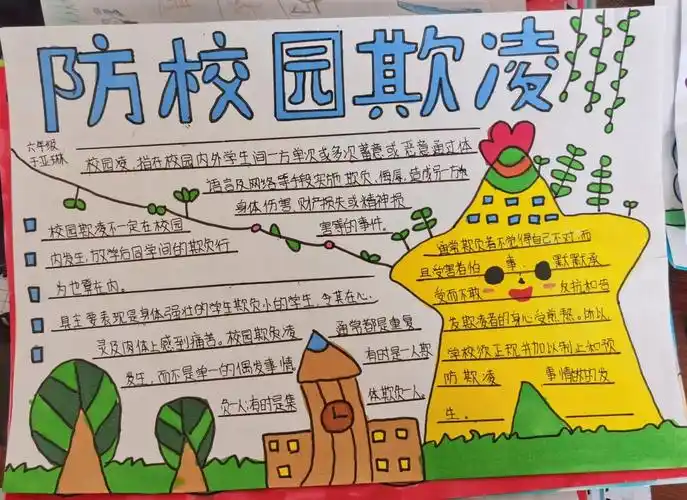 防校园欺凌
六年级
于亚琳
校园凌,指在校园内外学生间一方单次或多次蓄意或恶意通过体
语言及网络等手段实施欺负、侮辱,造成另一方
身体伤害、财产损失或精神损
害等的事件。
校园欺凌不一定在校园
内发生,放学后同学间的欺负行
为也算在内。
具主要表现是身体强壮的学生欺负小的学生,令其在心
灵及肉体上感到痛苦。校园欺凌
通常都是重复
发生,而不是单一的偶发事情
有时是一人欺
负一人,有时是集
体欺负一人。
通常欺负者不觉得自己不对,而
且受害者怕
事,
默默承
受而不敢
反抗和
发欺凌者的身心受煎熬。所以
学校须正视并加以制止和预
防欺凌
事情的发
生。